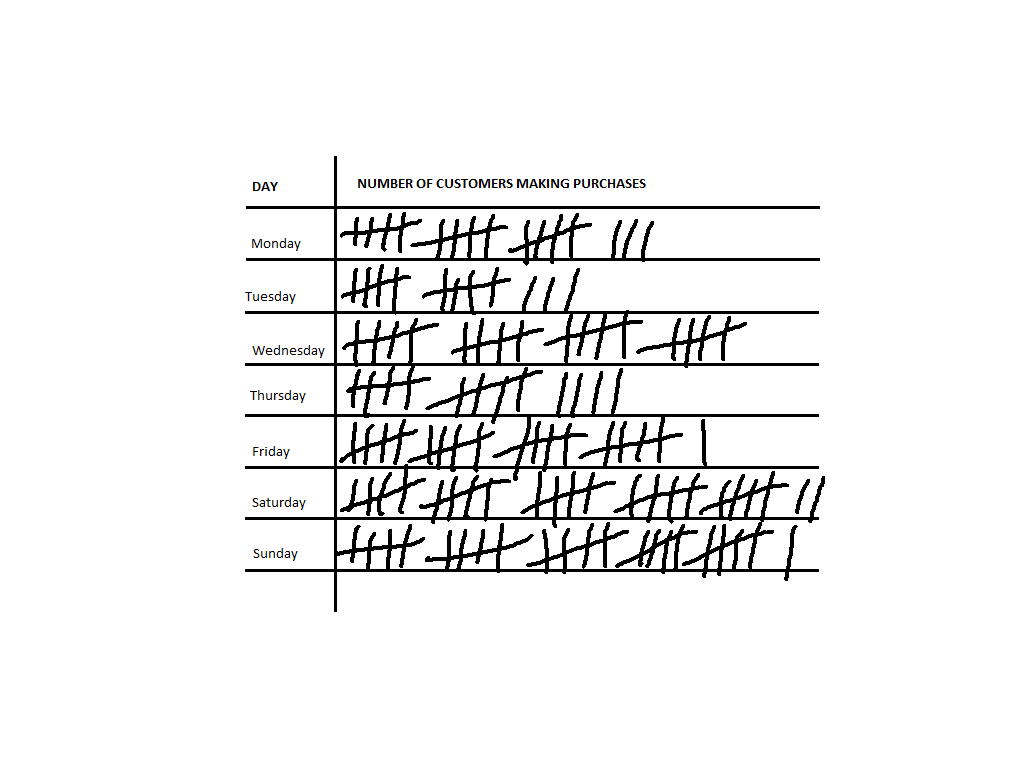 DAY NUMBER OF CUSTOMERS MAKING PURCHASES
Monday
Tuesday
Wednesday
Thursday
Friday
Saturday
Sunday